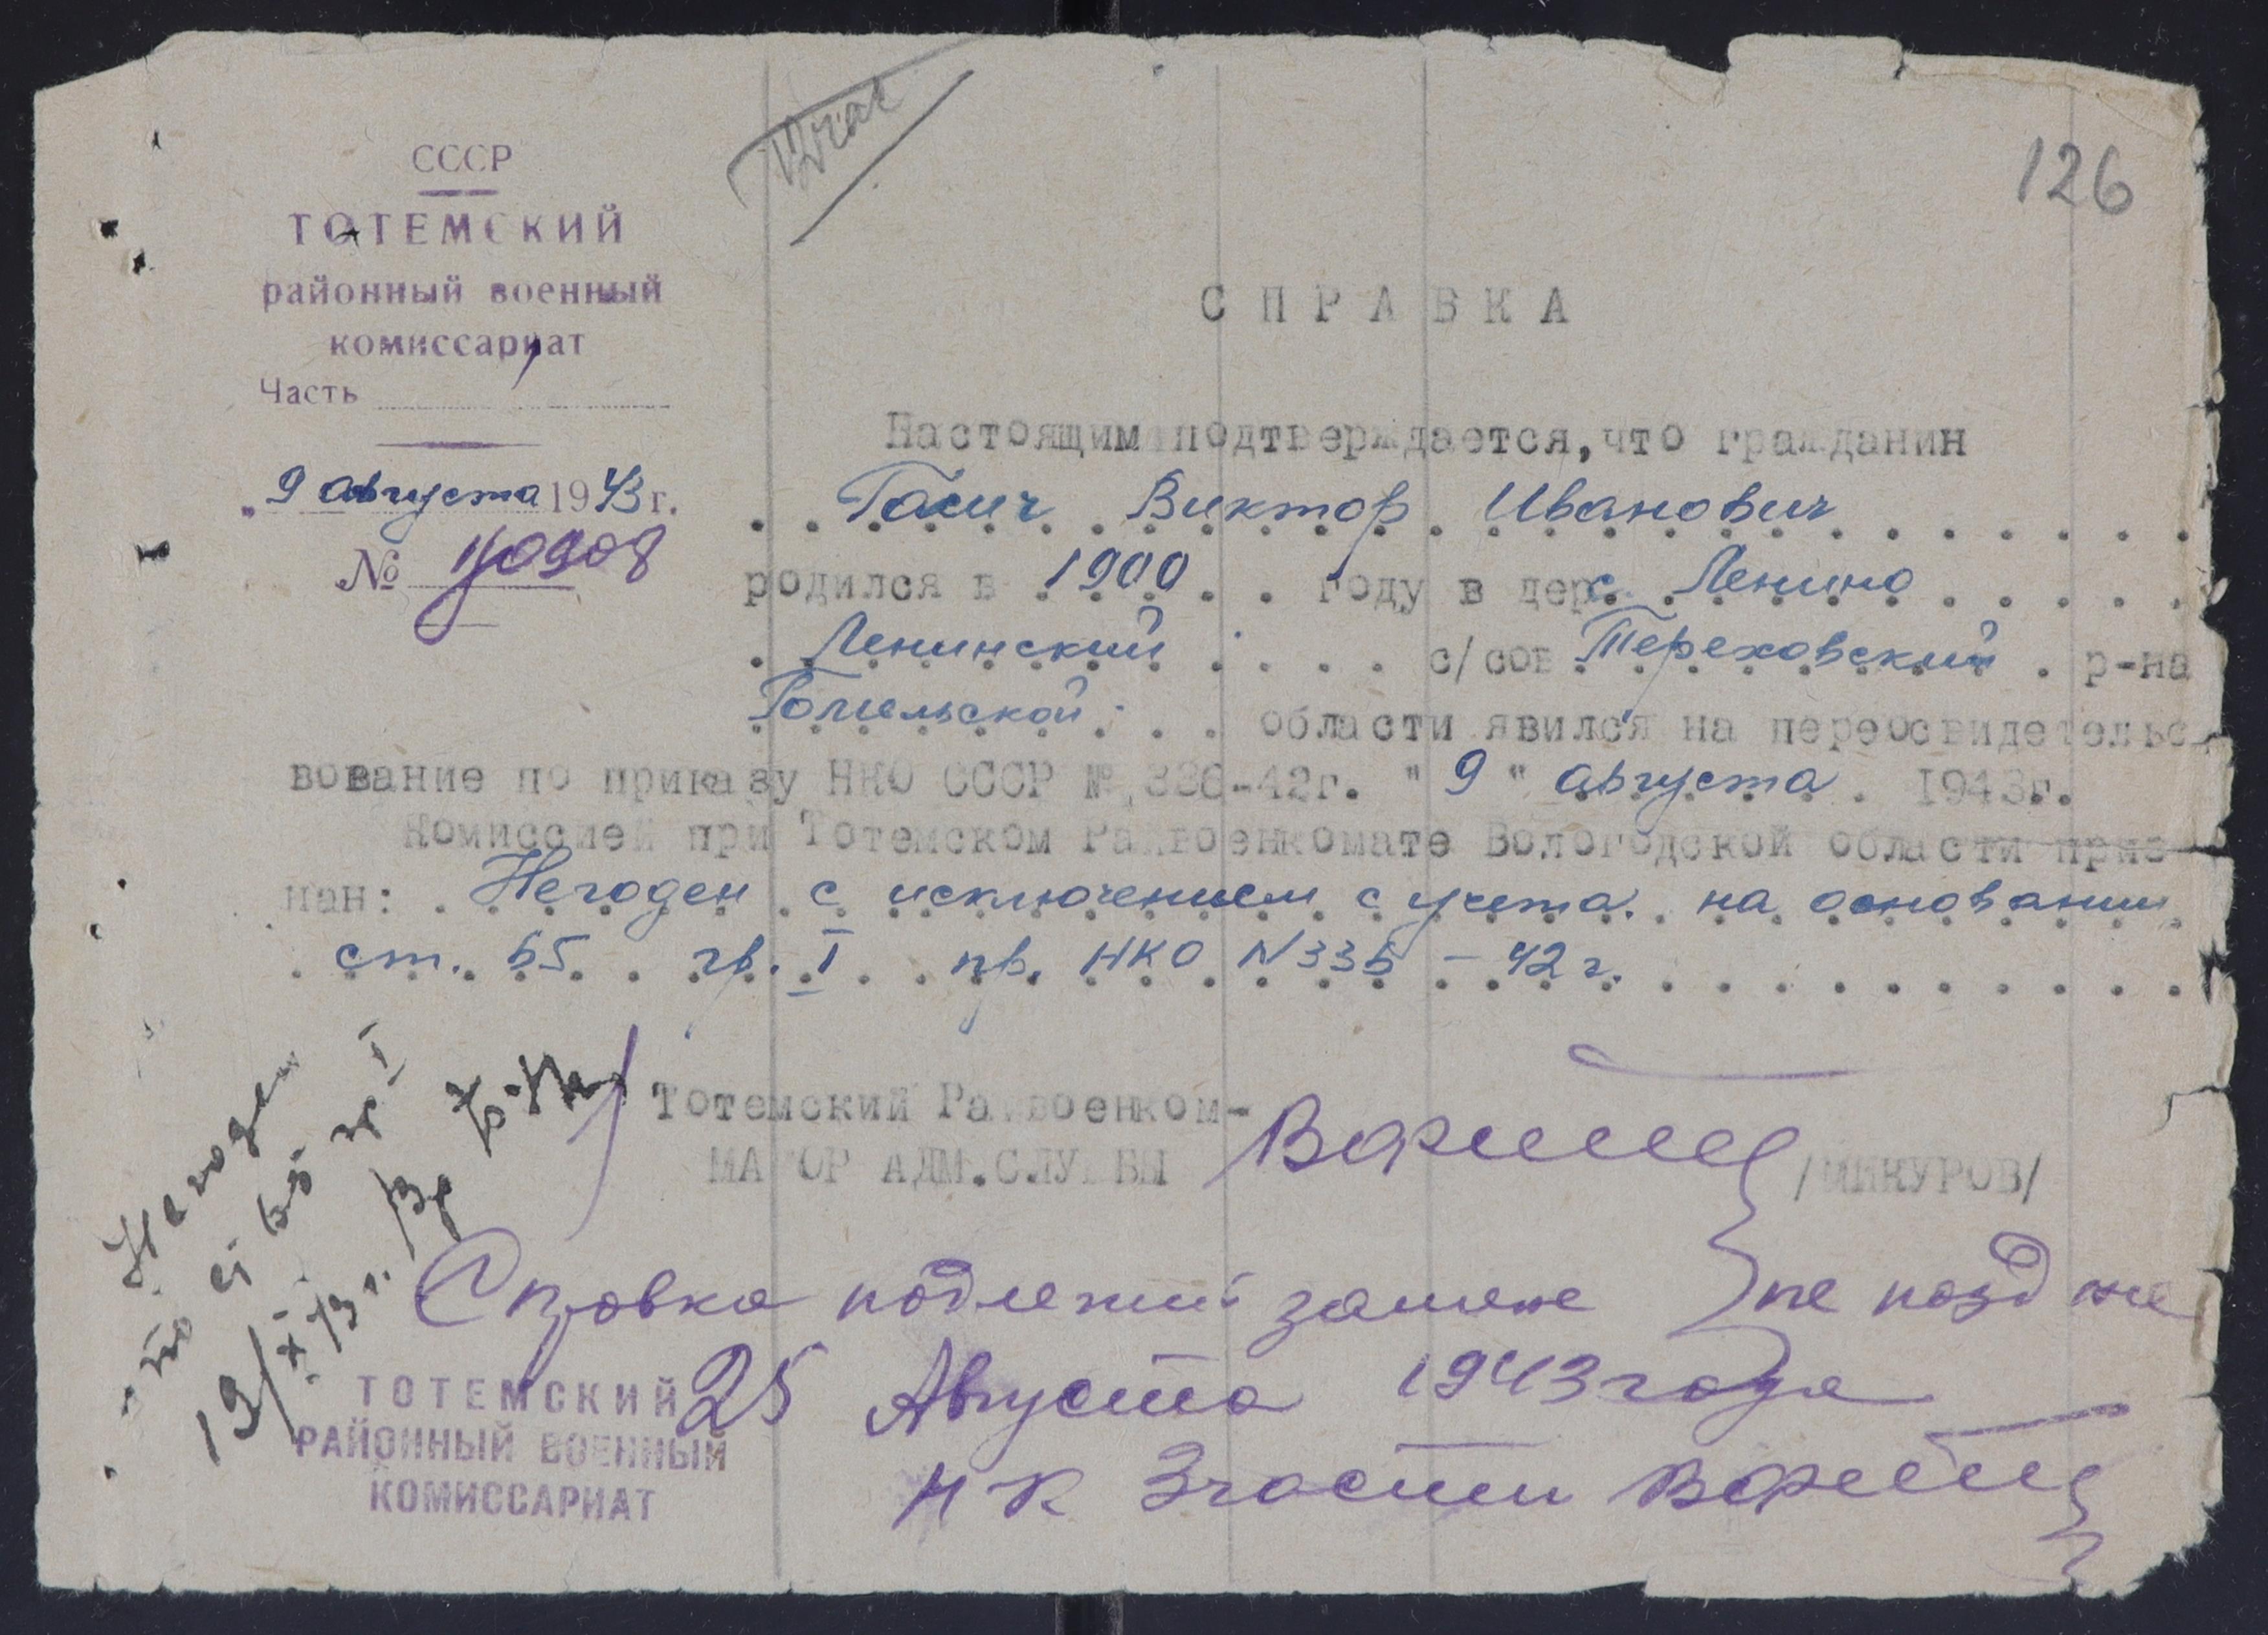 126
СССР
ТОТЕМСКИЙ
районный военный
комиссариат
Часть
"9 августа 1943 г.
№
СПРАВКА
Настоящим подтверждается, что гражданин
Виктор Иванович
родился в 1900 году в дер. Ленино
Ленинский с/сов Тереховский р-на
Гомельской области явился на переосвидетельс
вование по приказу НКО СССР № 336-42г. "9" августа 1943г.
Комиссией при Тотемском Райвоенкомате Вологодской области приз
нан: Негоден с исключением с учета. на основании
ст. 65 гр. I пр. НКО N 336 - 42 г.
Тотемский Райвоенком-
МАЙОР АДМ.СЛУЖБЫ /МИНУРОВ/
Справка подлежит замене не позд нее
25 Августа 1943 года
НК 3 части
Негоден
по ст 65 гр I
19/X 43 г.
ТОТЕМСКИЙ
РАЙОННЫЙ ВОЕННЫЙ
КОМИССАРИАТ